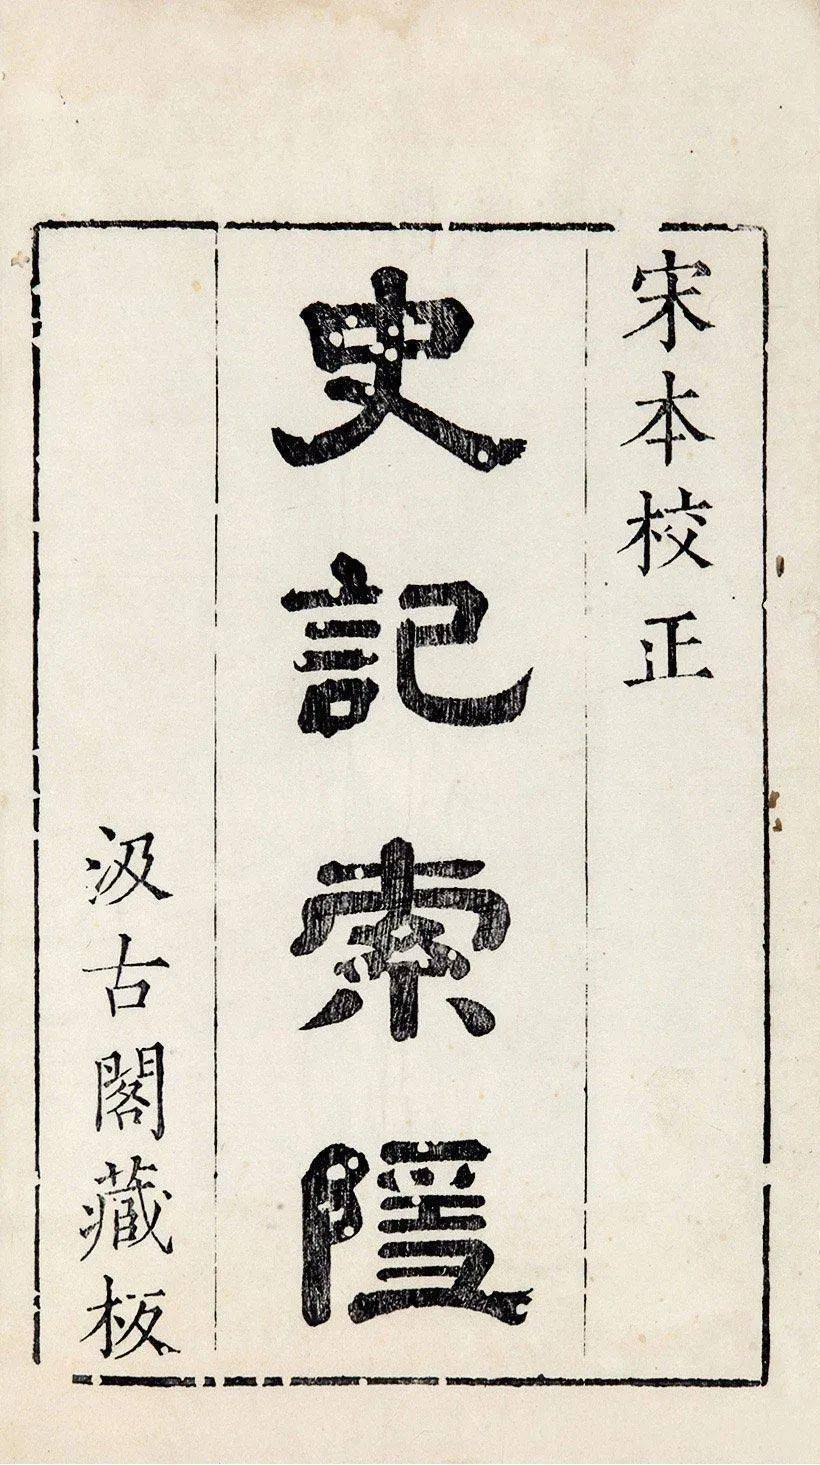 宋本校正
史記索隱
汲古閣藏板